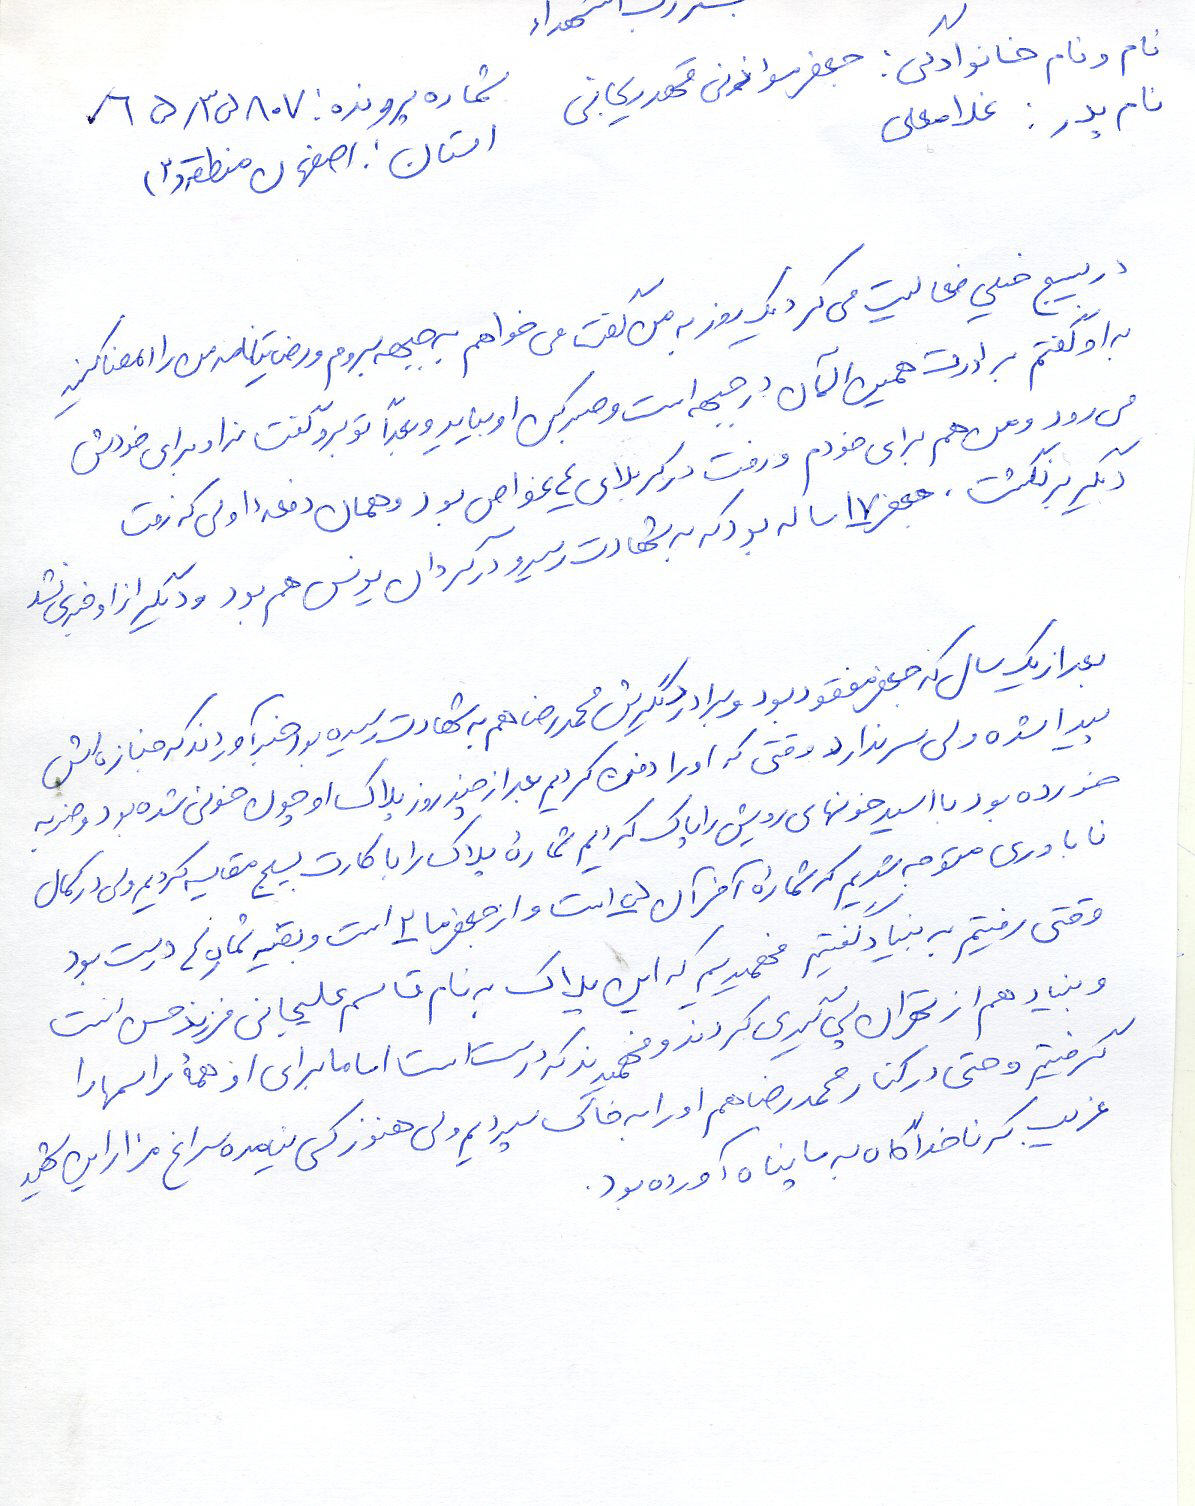 بسم رب الشهداء
نام و نام خانوادگی: جعفر قهدریجانی
نام پدر: غلامعلی
شماره پرونده:
استان: اصفهان منطقه (۳)
در بسیج خیلی فعالیت می کرد یک روز به من گفت می خواهم به جبهه بروم و رضایتنامه من را امضا کنید
به او گفتم برادرت همین الان در جبهه است و صبر کن او بیاید و بعداً تو برو گفت نه او برای خودش
می رود و من هم برای خودم و رفت در کربلای ۴ غواص بود و همان دفعه اولی که رفت
دیگر برنگشت. جعفر ۱۷ ساله بود که به شهادت رسید و در گردان یونس هم بود و دیگر از او خبری نشد
بعد از یک سال که جعفر مفقود بود و برادر دیگرش محمدرضا هم به شهادت رسیده بود خبر آوردند که جنازه اش
پیدا شده ولی سر ندارد وقتی که او را دفن کردیم بعد از چند روز پلاک او چون خونی شده بود و ضربه
خورده بود با اسید خونهای رویش را پاک کردیم شمارهٔ پلاک را با کارت بسیج مقایسه کردیم ولی در کمال
ناباوری متوجه شدیم که شمارهٔ آخر آن است و از جعفر ما ۲ است و بقیه شماره ها درست بود
وقتی رفتیم به بنیاد گفتیم فهمیدیم که این پلاک به نام قاسم علیجانی فرزند حسن است
و بنیاد هم از تهران پی گیری کردند و فهمیدند که درست است اما ما برای او همهٔ مراسمها را
گرفتیم و حتی در کنار محمدرضا هم او را به خاک سپردیم ولی هنوز کسی نیامده سراغ مزار این شهید
غریب که ناخدآگاه به ما پناه آورده بود.